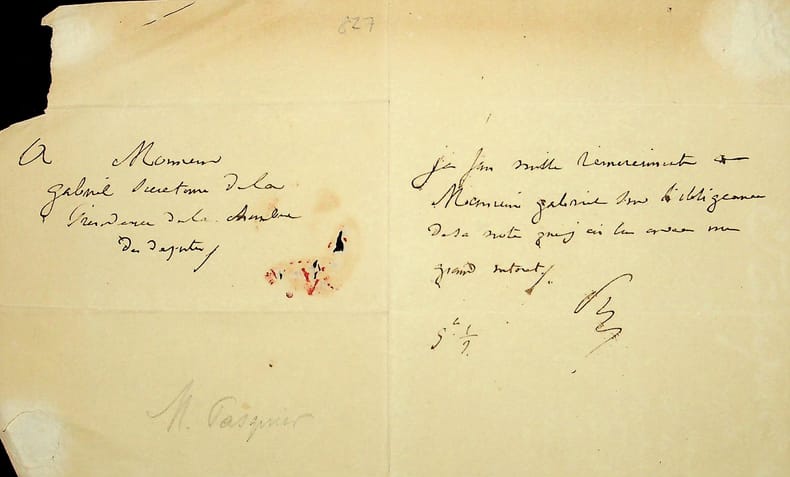 827
A Monsieur
gabriel Secretaire de la
Présidence de la chambre
des deputés
M. Pasquier
je fais mille remerciments a
Monsieur gabriel pour l'obligeance
de sa note que j'ai lu avec un
grand interet.